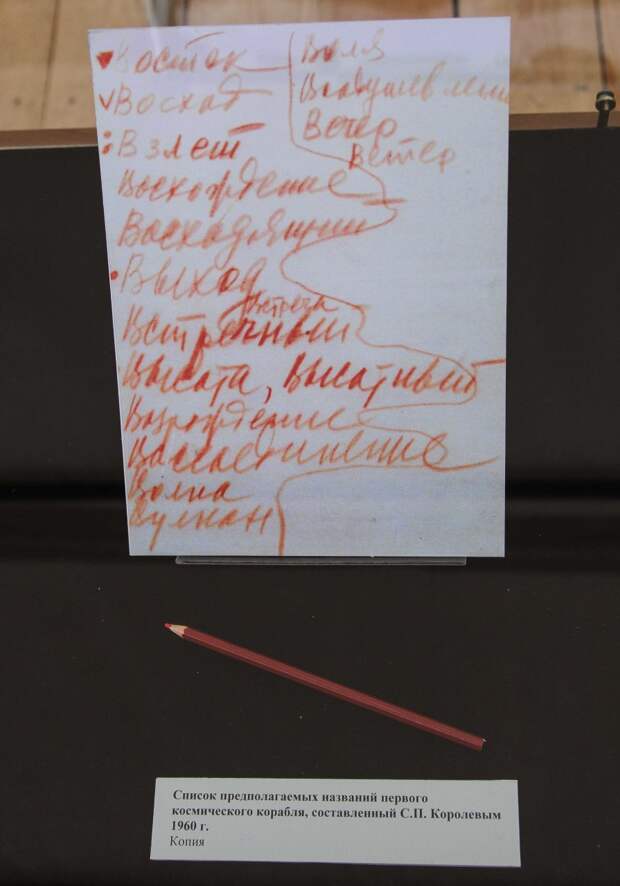 Восток
Восход
Взлет
Восхождение
Восходящий
Выход
Встреча
Встречный
Высота, Высотный
Возрождение
Воссоединение
Волна
Вулкан
Воля
Воодушевление
Вечер
Ветер
Список предполагаемых названий первого
космического корабля, составленный С.П. Королевым
1960 г.
Копия